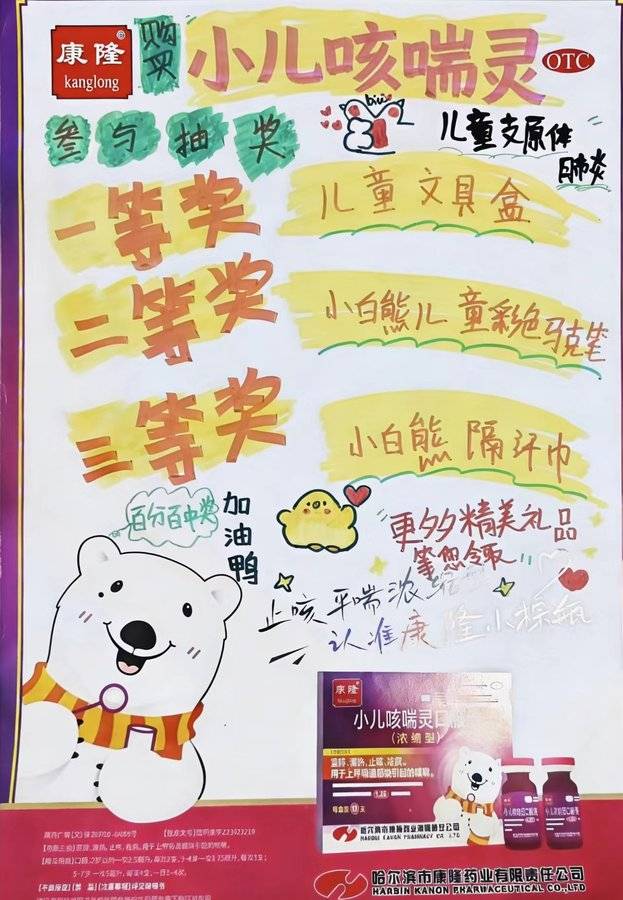 康隆
kanglong
购买
小儿咳喘灵
OTC
参与抽奖
biu
儿童支原体
肺炎
一等奖
儿童文具盒
二等奖
小白熊儿童彩绘马克笔
三等奖
小白熊隔汗巾
百分百中奖
加油鸭
更多多精美礼品
等您领取
止咳平喘浓缩
认准康隆小棕瓶
康隆
小儿咳喘灵口服
(浓缩型)
宣肺、清热、止咳、祛痰。
用于上呼吸道感染引起的咳嗽。
哈尔滨市康隆药业有限责任公司
HARBIN KANON PHARMACEUTICAL CO.,LTD